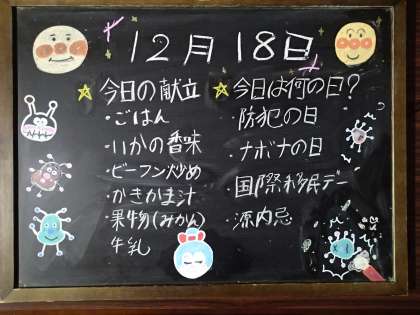 12月18日
今日の献立
・ごはん
・いかの香味
・ビーフン炒め
・かきかま汁
・果物(みかん)
牛乳
今日は何の日?
・防犯の日
・ナボナの日
・国際移民デー
・源内忌